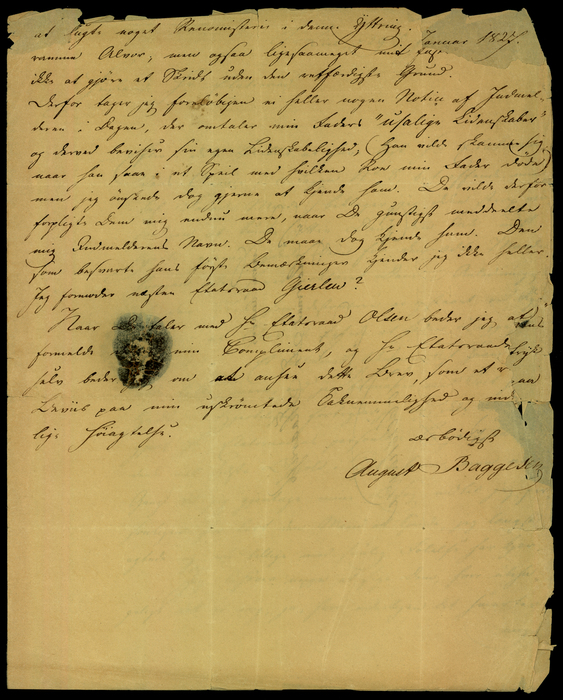 at søgte noget Renomisteri i denne Yttring.
Januar 1827.
ramme Alvor, men ogsaa ligesaameget mit
ikke at gjøre et Skridt uden den retfærdigste Grund.
Derfor tager jeg foreløbigen ei heller nogen Notice af Indmel-
deren i Dagen, der omtaler min Faders "usalige Lidenskaber"
og derved beviser sin egen Lidenskabelighed, (Han vilde skamme sig,
naar han saae i et Speil med hvilken Roe min Fader døde)
men jeg ønskede dog gjerne at kjende ham. De vilde derfor
forpligte dem mig endnu mere, naar De gunstigst meddeelte
mig Indmelderens Navn. De maae dog kjende ham. Den
som besvarte hans første Bemærkninger kjender jeg ikke heller.
Jeg formoder næsten Etatsraad Gierlew?
Naar De taler med Hr Etatsraad Olsen beder jeg at
formelde min Compliment, og Hr Etatsraad
selv beder jeg om at ansee dette Brev, som et
Beviis paa min uskrømtede Taknemmelighed og
lige Høiagtelse.
ærbødigst
August Baggesen